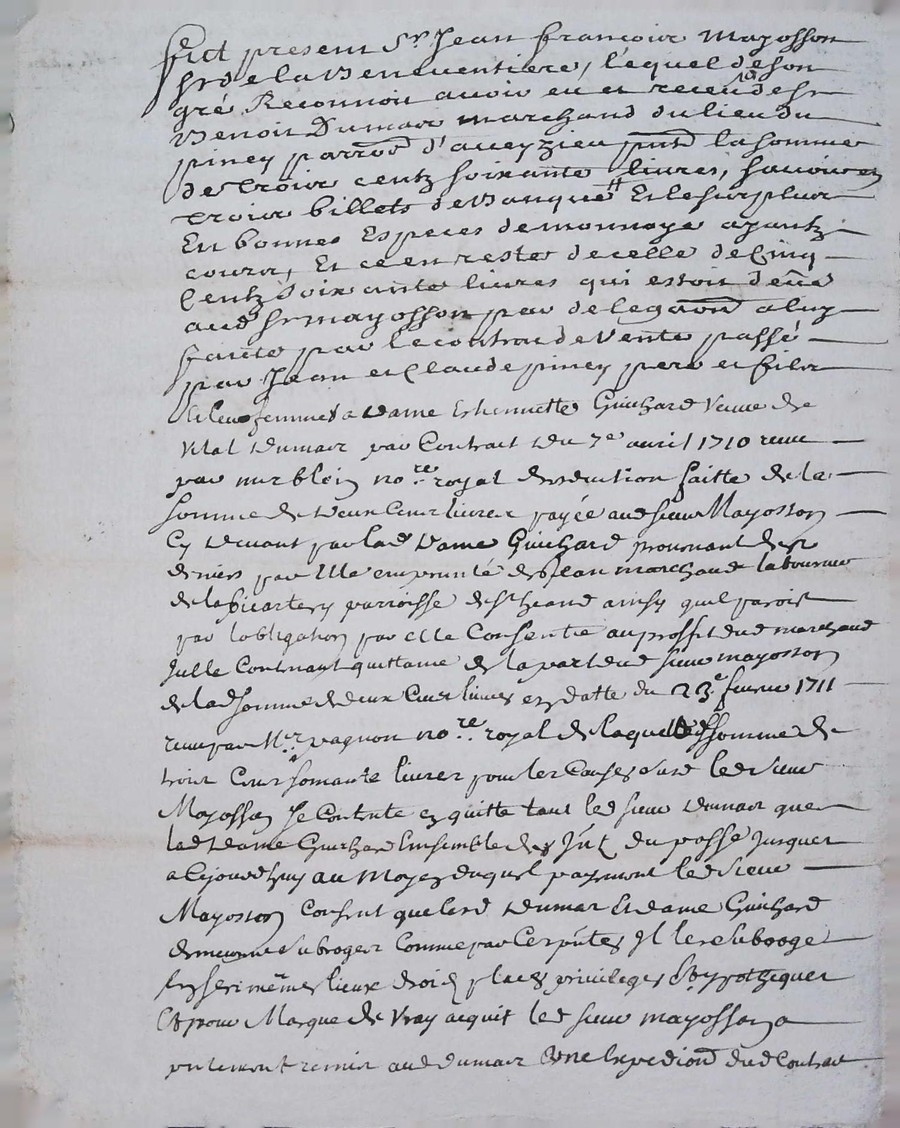 fut present Sr. Jean francois Mayosson
Sr de la Beneventiere, lequel de son
gré Reconnoit avoir eu et receu de sr
Benoit Dumas marchand du lieu du
piney parrosse d'aveyzieu pnt la somme
de trois centz soixante livres, savoir en
trois billets de Banque Et le surplus
En bonnes Especes de monnoye ayantz
cours, Et ce en reste de celle de Cinq
Centz soixante livres qui estoit deue
aud Sr mayosson par delegaon a luy
faitte par le contrat de Vente passé
par Jean et Claude piney pere et fils
et leurs femmes a dame Estiennette Guichard Veuve de
Vital Dumas par Contrait du 7e avril 1710 receu
par me blein nore royal deduction faitte de la
somme de deux Cens livres payée aud sieur Mayosson
Cy devant par lad dame Guichard provenant de
deniers par Elle emprunté de Jean marchand laboureur
de la parroisse de St heand ainsy quil paroit
par lobligation par elle Consentie au proffit dud marchand
Jcelle Contenant quittance de la part dud sieur mayosson
de lad somme de deux Cens livres en datte du 23e fevrier 1711
receu par Mr. pagnon nore. royal de laquelle somme de
trois Cens soixante livres pour les Causes susd led sieur
Mayosson se Contente en quitte tant led sieur dumas que
lad dame Guichard Ensemble des Jnt du passé Jusques
a Cejourdhuy au Moyen duquel payement led sieur
Mayosson Consent que lesd dumas Et dame Guichard
demeurent subroges Comme par Ces pntes Jl les subroge
En ses mêmes lieux droits places privileges & hypotheques
Et pour Marque de Vray acquit led sieur mayosson a
pntement remis aud dumas Une Expedion dud Contrat